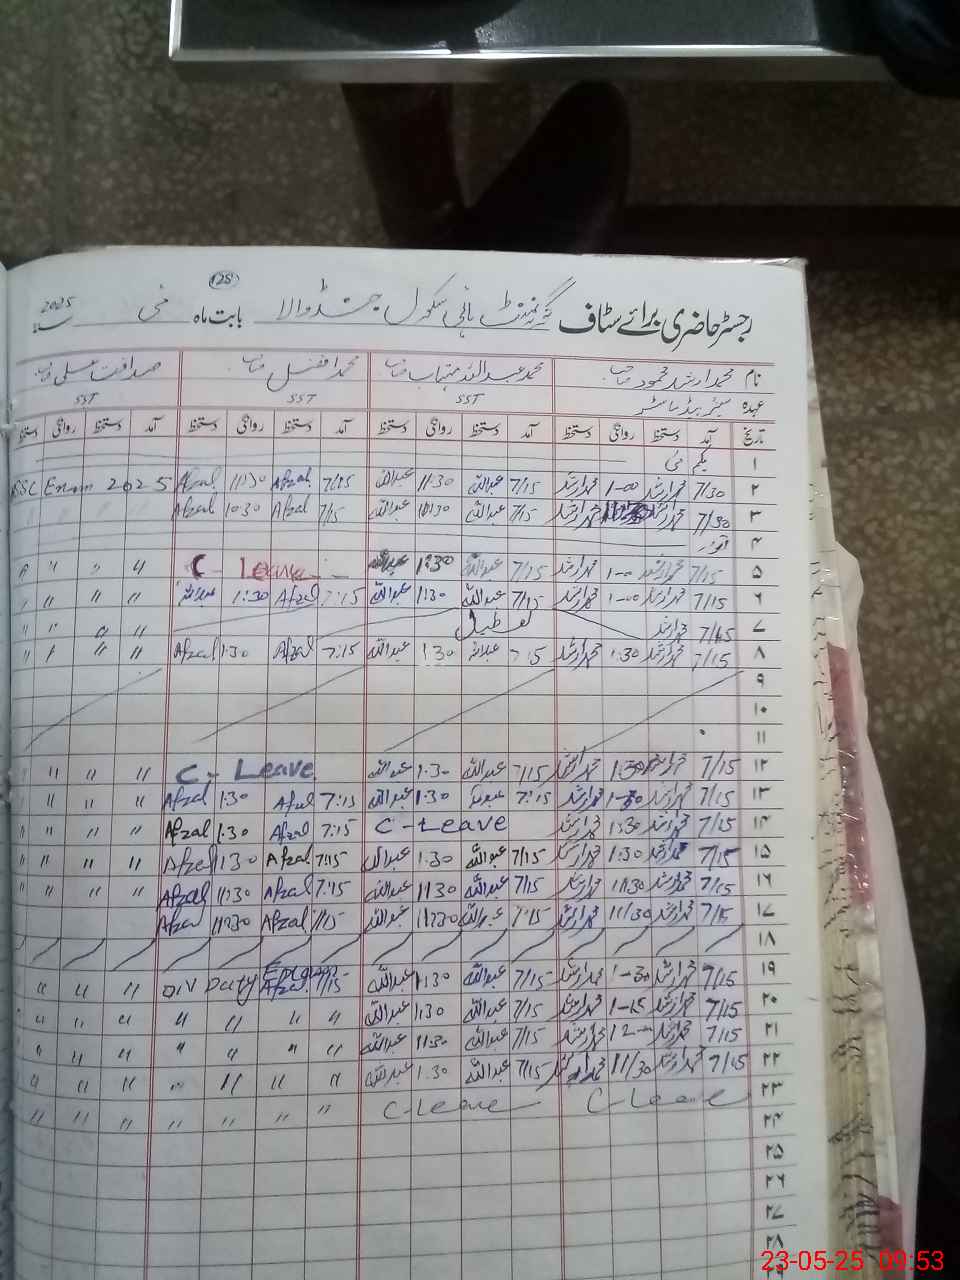 125
رجسٹر حاضری برائے سٹاف گورنمنٹ ہائی سکول جنڈوالا بابت ماہ مئی 2025
نام محمد ارشد محمود صاحب محمد عبداللہ صاحب محمد افضل صاحب صداقت علی صاحب
عہدہ SST SST SST
تاریخ آمد دستخط روانگی دستخط آمد دستخط روانگی دستخط آمد دستخط روانگی دستخط آمد دستخط روانگی دستخط
۱ یکم مئی
۲ 7/30 محمد ارشد 1-00 محمد ارشد 7/15 عبداللہ 11:30 عبداللہ 7/15 Afzal 11:30 Afzal SSC Exam 2025
۳ 7/30 محمد ارشد محمد ارشد 7/15 عبداللہ عبداللہ 7/15 Afzal 10:30 Afzal
۴ اتوار
۵ 7/15 محمد ارشد 1-00 محمد ارشد 7/15 عبداللہ 1:30 عبداللہ C - Leave " " " "
۶ 7/15 محمد ارشد 1-00 محمد ارشد 7/15 عبداللہ 1:30 عبداللہ 7:15 Afzal 1:30 عبداللہ " " " "
۷ 7/45 محمد ارشد تعطیل " " " "
۸ 7/15 محمد ارشد 1:30 محمد ارشد 7:15 عبداللہ 1:30 عبداللہ 7:15 Afzal 1:30 Afzal " " " "
۹
۱۰
۱۱
۱۲ 7/15 محمد ارشد 1:30 محمد ارشد 7/15 عبداللہ 1:30 عبداللہ C - Leave " " "
۱۳ 7/15 محمد ارشد محمد ارشد 7:15 عبداللہ 1:30 عبداللہ 7:15 Afzal 1:30 Afzal " " "
۱۴ 7/15 محمد ارشد 1:30 محمد ارشد C-Leave 7:15 Afzal 1:30 Afzal " " "
۱۵ 7/15 محمد ارشد 1:30 محمد ارشد 7/15 عبداللہ 1:30 عبداللہ 7:15 Afzal 1:30 Afzal " " "
۱۶ 7/15 محمد ارشد 11:30 محمد ارشد 7/15 عبداللہ 11:30 عبداللہ 7:15 Afzal 11:30 Afzal " " "
۱۷ 7/15 محمد ارشد 11/30 محمد ارشد 7:15 عبداللہ 11:30 عبداللہ 7/15 Afzal 11:30 Afzal
۱۸
۱۹ 7/15 محمد ارشد 1-30 محمد ارشد 7/15 عبداللہ 1:30 عبداللہ 7/15 Afzal Duty Div " " "
۲۰ 7/15 محمد ارشد 1-15 محمد ارشد 7/15 عبداللہ 1:30 عبداللہ " " " " " " "
۲۱ 7/15 محمد ارشد 12-00 محمد ارشد 7/15 عبداللہ 11:30 عبداللہ " " " " " " "
۲۲ 7/15 محمد ارشد 11/30 محمد ارشد 7/15 عبداللہ 1:30 عبداللہ " " " " " " "
۲۳ C-Leave C-Leave " " " " " " " "
۲۴
۲۵
۲۶
۲۷
۲۸
23-05-25 09:53